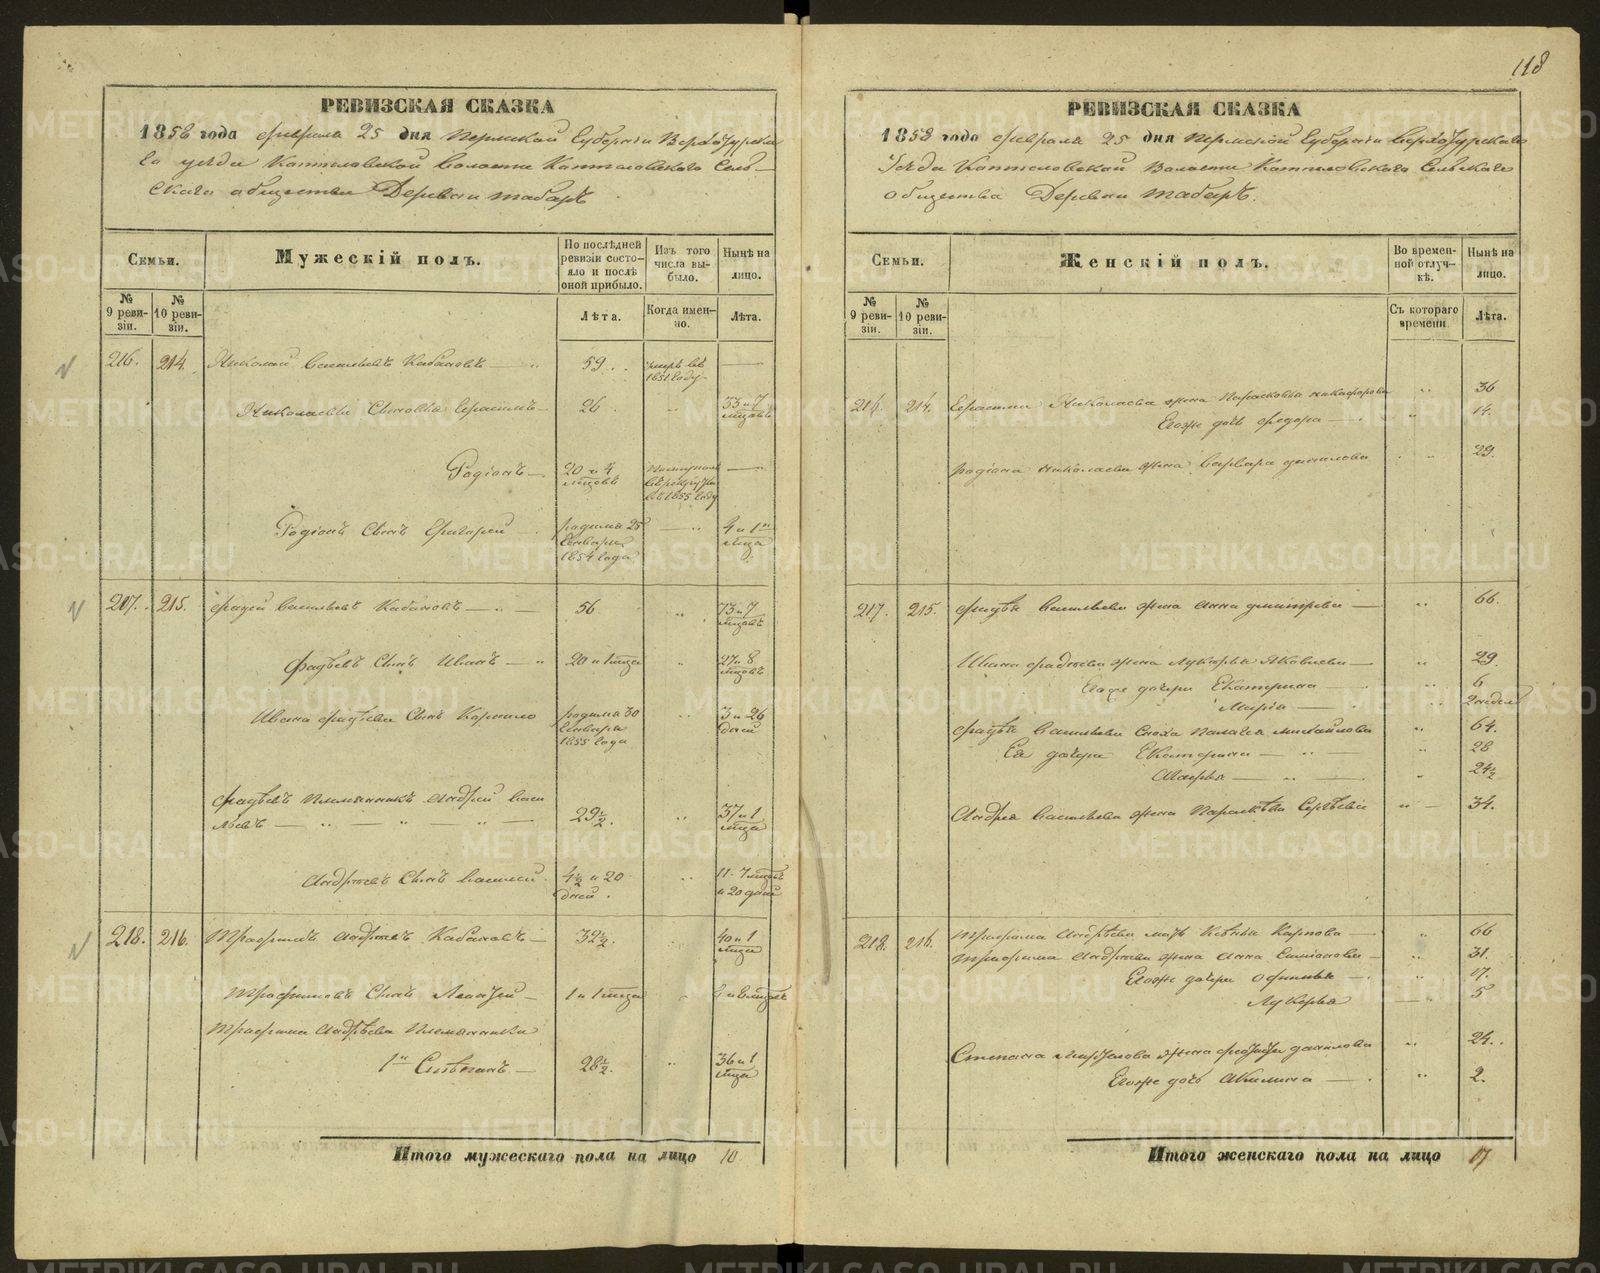 118
РЕВИЗСКАЯ СКАЗКА
1858 года февраля 25 дня Пермской Губернии Верхотурска
го уезда Коптеловской Волости Коптеловского Сель-
скаго общества Деревни Таборъ
Семьи.
Мужескій полъ.
По послѣдней ревизіи состояло и послѣ оной прибыло.
Изъ того числа выбыло.
Нынѣ на лицо.
№ 9 ревизіи.
№ 10 ревизіи.
Лѣта.
Когда именно.
Лѣта.
216. 214. Николай Васильевъ Кабаковъ 59 умеръ въ 1851 году
Николаевы Сыновья Герасимъ 26 33 и 7 мцовъ
Родіонъ 20 и 4 мцовъ въ 1855 году
Родіонъ Сынъ Григорей родился 25 Генваря 1854 года 4 и 1 мца
217. 215. Фадей Васильевъ Кабаковъ 56 73 и 7 мцовъ
Фадѣевъ Сынъ Иванъ 20 и 1 мца 27 и 8 мцовъ
Ивана Фадѣева Сынъ Корнило родился 30 Генваря 1855 года 3 и 26 дней
Фадѣевъ Племянникъ Андрей Васи
льевъ 29½. 37 и 1 мца
Андреевъ Сынъ Василей 4½ и 20 дней. 11. 7 мцовъ и 20 дней
218. 216. Трофимъ Андреевъ Кабаковъ 32½. 40 и 1 мца
Трофимовъ Сынъ 1 и 1 мца
Трофима Андреева Племянники
1й Степанъ 28½. 36 и 1 мца
Итого мужескаго пола на лицо 10
РЕВИЗСКАЯ СКАЗКА
1858 года февраля 25 дня Пермской Губернии Верхотурскаго
Уезда Коптеловской Волости Коптеловскаго Сельскаго
общества Деревни Таборъ.
Семьи.
Женскій полъ.
Во временной отлучкѣ.
Нынѣ на лицо.
№ 9 ревизіи.
№ 10 ревизіи.
Съ котораго времени
Лѣта.
216. 214. Герасима Николаева жена Парасковья Никифорова 36
Егоже дочь Федора 14.
Родіона Николаева жена Варвара Данилова 29.
217. 215. Фадѣя Васильева жена Анна Дмитрева 66.
Ивана Фадѣева жена Лукерья Яковлева 29.
Егоже дочери Екатерина 6
Марія 2 недел
Фадѣя Васильева Сноха Палагея Михайлова 64.
Ея дочери Екатерина 28
Марья 24½
Андрея Васильева жена Парасковья Сергѣева 34.
218. 216. Трофима Андреева мать Ксенья Карпова 66
Трофима Андреева жена Анна 31.
Егоже дочери Офимья 17.
Лукерья 5
Степана жена Федосья Данилова 24.
Егоже дочь Акилина 2.
Итого женскаго пола на лицо 17
METRIKI.GASO-URAL.RU